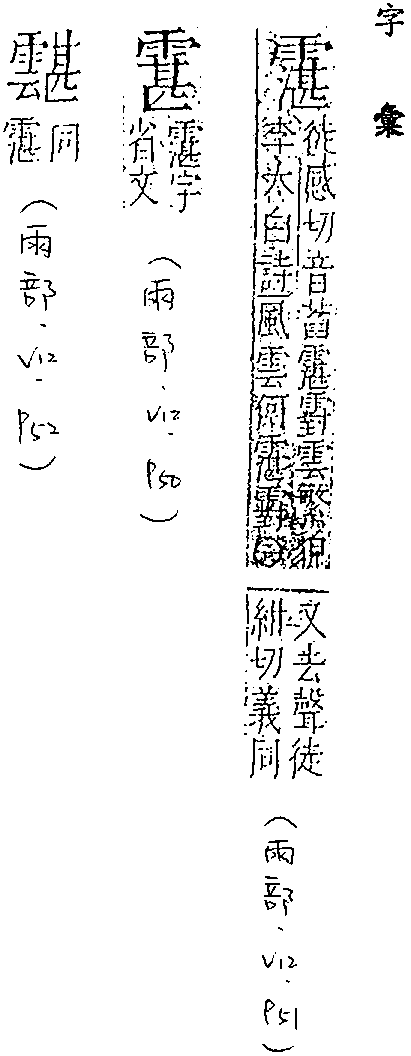 字彙
霮
徒感切音萏霮䨴雲繁貌
李太白詩風雲何霮䨴
又去聲徒
紺切義同
(雨部.V12.P51)
霮字
省文
(雨部.V12.P50)
同
霮
(雨部.V12.P52)